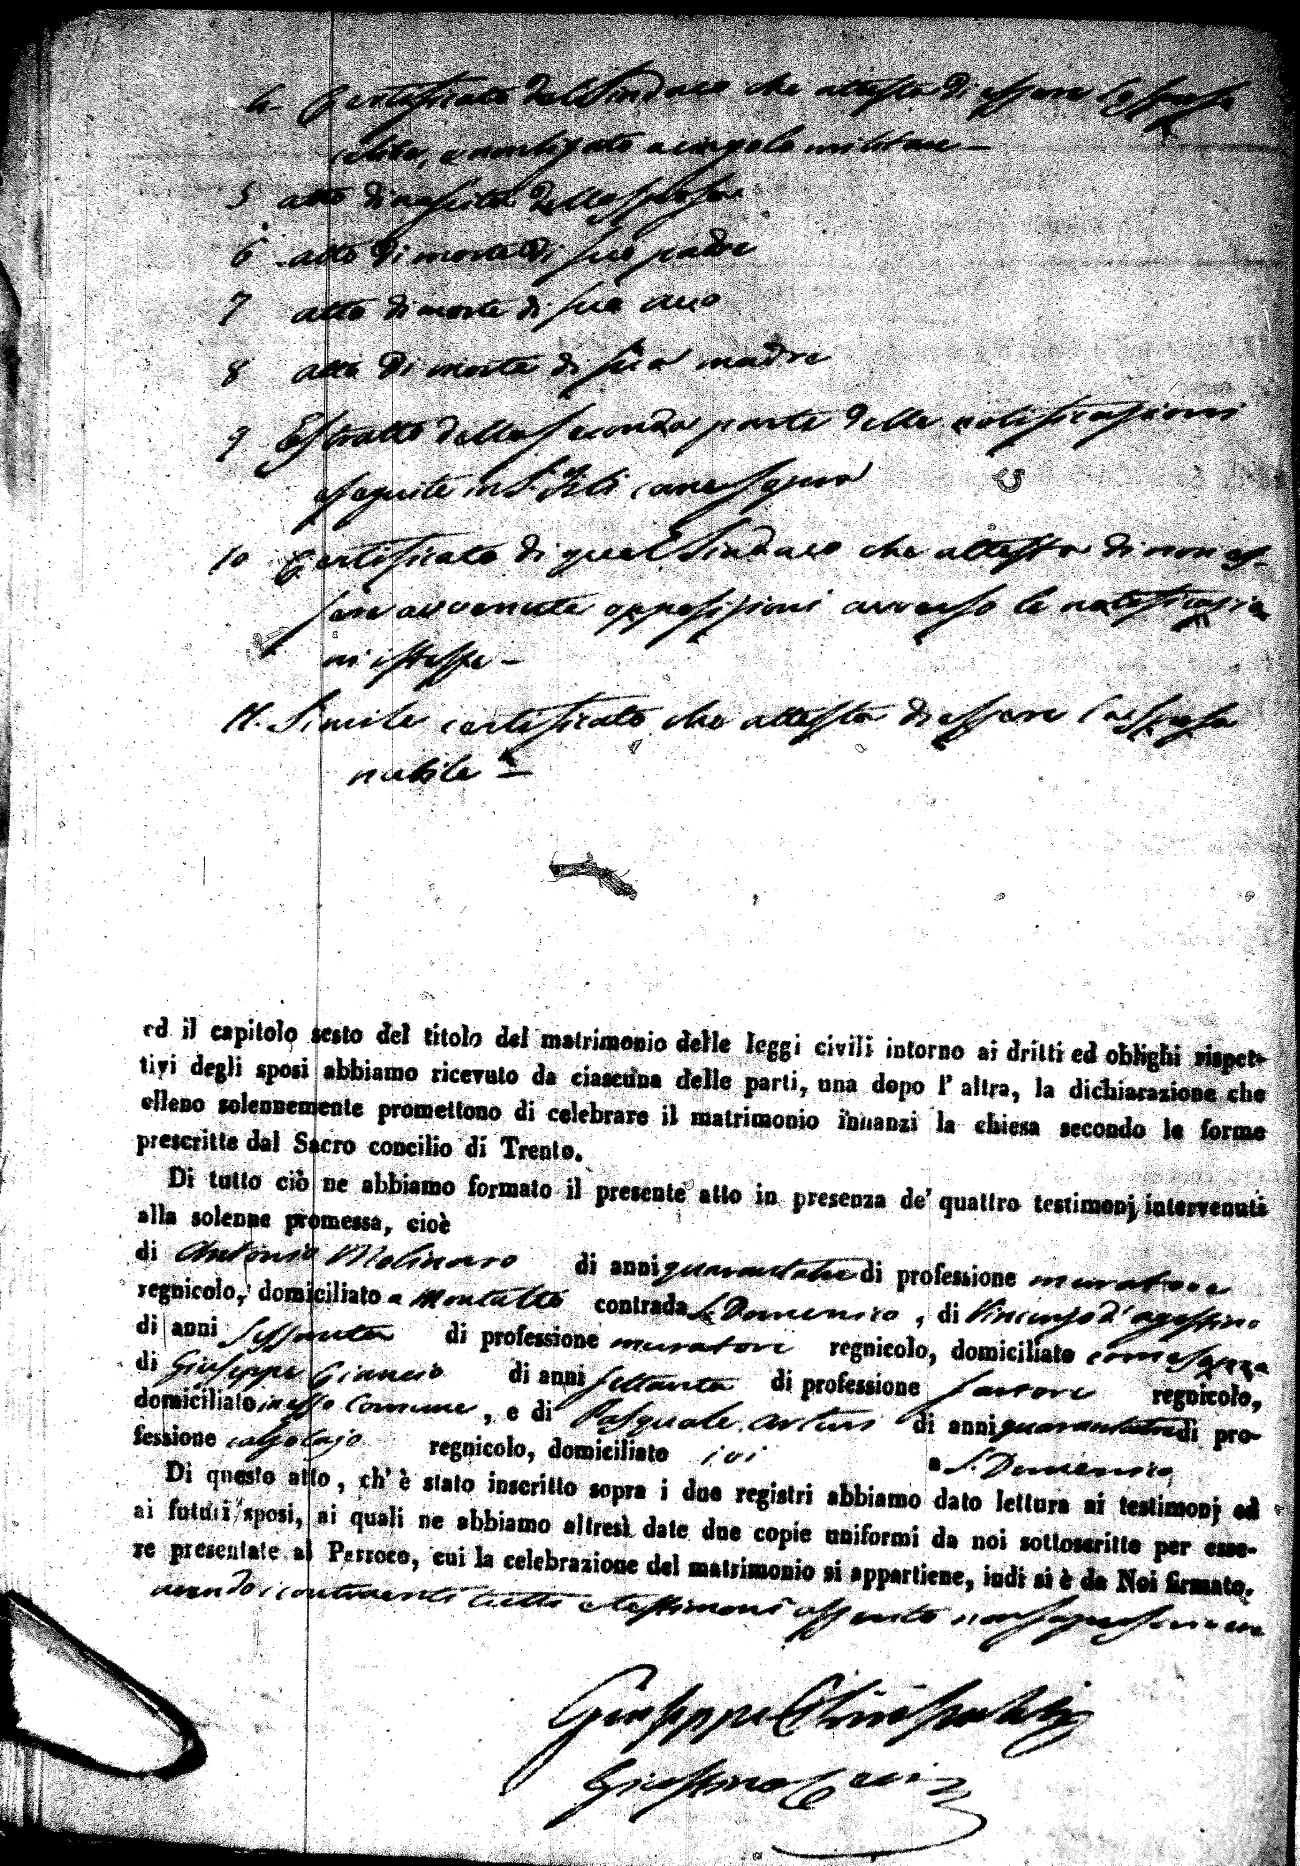 4. Certificato del Sindaco che attesta di essere lo sposo
celibe, e non ligato a cingolo militare –
5 atto di nascita della sposa
6 atto di morte di suo padre
7 atto di morte di suo avo
8 atto di morte di sua madre
9 Estratto della seconda parte delle notificazioni
eseguite in S. Vili come sopra
10 Certificato di quel Sindaco che attesta di non es-
sere avvenute opposizioni avverso le notificazio
ni istesse –
11. Simile certificato che attesta di essere la sposa
nubile –
ed il capitolo sesto del titolo del matrimonio delle leggi civili intorno ai dritti ed oblighi rispet-
tivi degli sposi abbiamo ricevuto da ciascuna delle parti, una dopo l' altra, la dichiarazione che
elleno solennemente promettono di celebrare il matrimonio innanzi la chiesa secondo le forme
prescritte dal Sacro concilio di Trento.
Di tutto ciò ne abbiamo formato il presente atto in presenza de' quattro testimonj intervenuti
alla solenne promessa, cioè
di Antonio Molinaro di anni quarantatre di professione muratore
regnicolo, domiciliato a Montalto contrada S. Domenico , di Vincenzo d'agostino
di anni Sessanta di professione muratore regnicolo, domiciliato come sopra
di Giuseppe di anni settanta di professione sartore regnicolo,
domiciliato in esso Comune , e di Pasquale Arturi di anni di pro-
fessione calzolajo regnicolo, domiciliato ivi a S. Domenico
Di questo atto, ch' è stato inscritto sopra i due registri abbiamo dato lettura ai testimonj ed
ai futuri sposi, ai quali ne abbiamo altresì date due copie uniformi da noi sottoscritte per esse-
re presentate al Parroco, cui la celebrazione del matrimonio si appartiene, indi si è da Noi firmato.
avendo i contraenti tutti e testimoni asserito non sapere scrivere
Giuseppe
Giustino